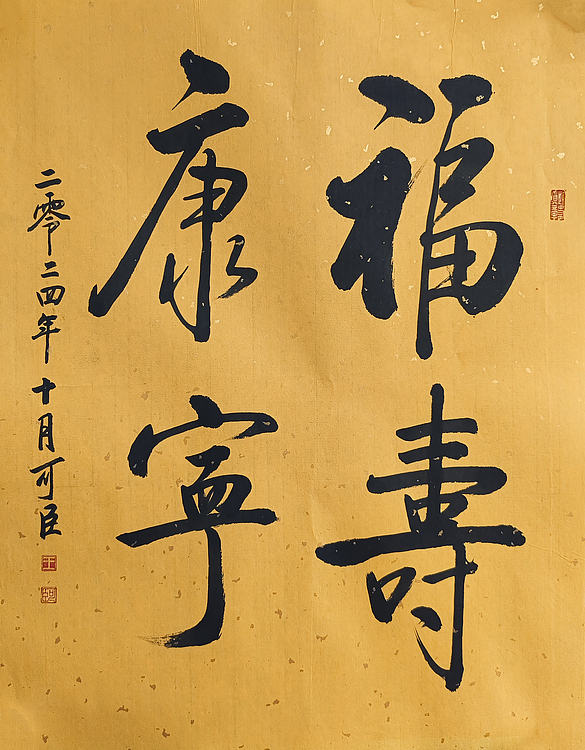 福壽
康寧
二零二四年十月可臣
王